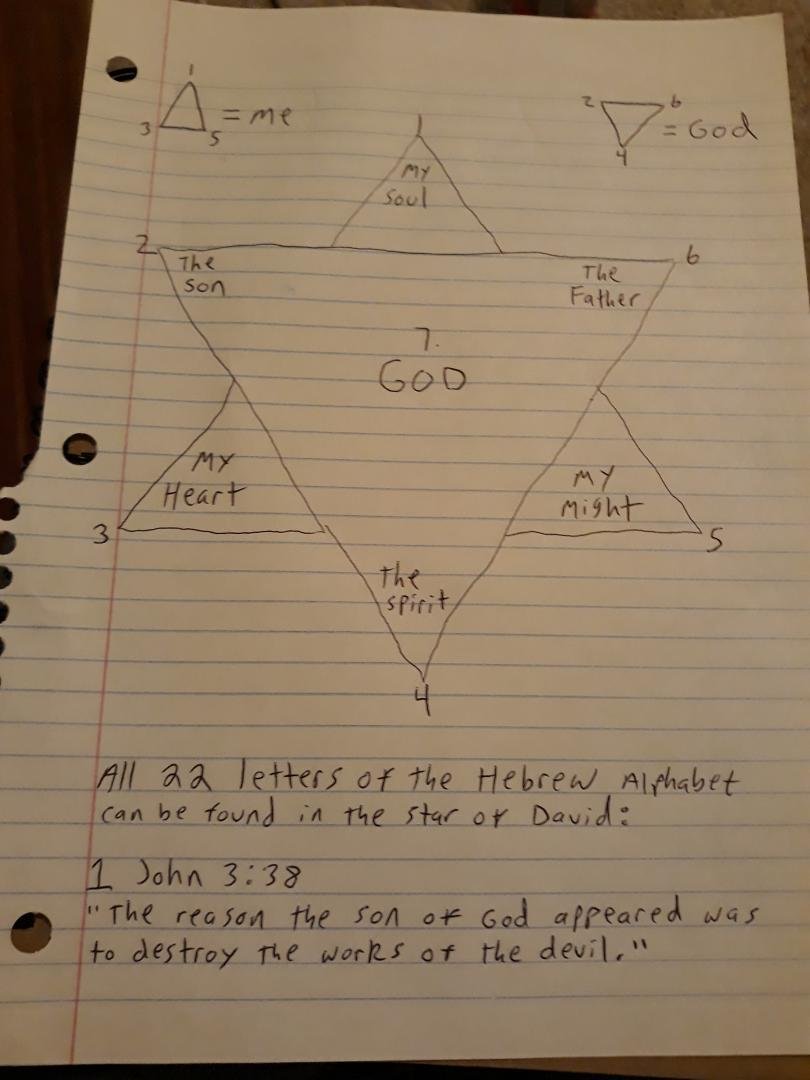 1
3
5
= me
2
6
4
= God
1
My
Soul
2
6
The
son
The
Father
7.
GOD
My
Heart
3
My
Might
5
the
spirit
4
All 22 letters of the Hebrew Alphabet
can be found in the star of David:
1 John 3:38
"The reason the son of God appeared was
to destroy the works of the devil."